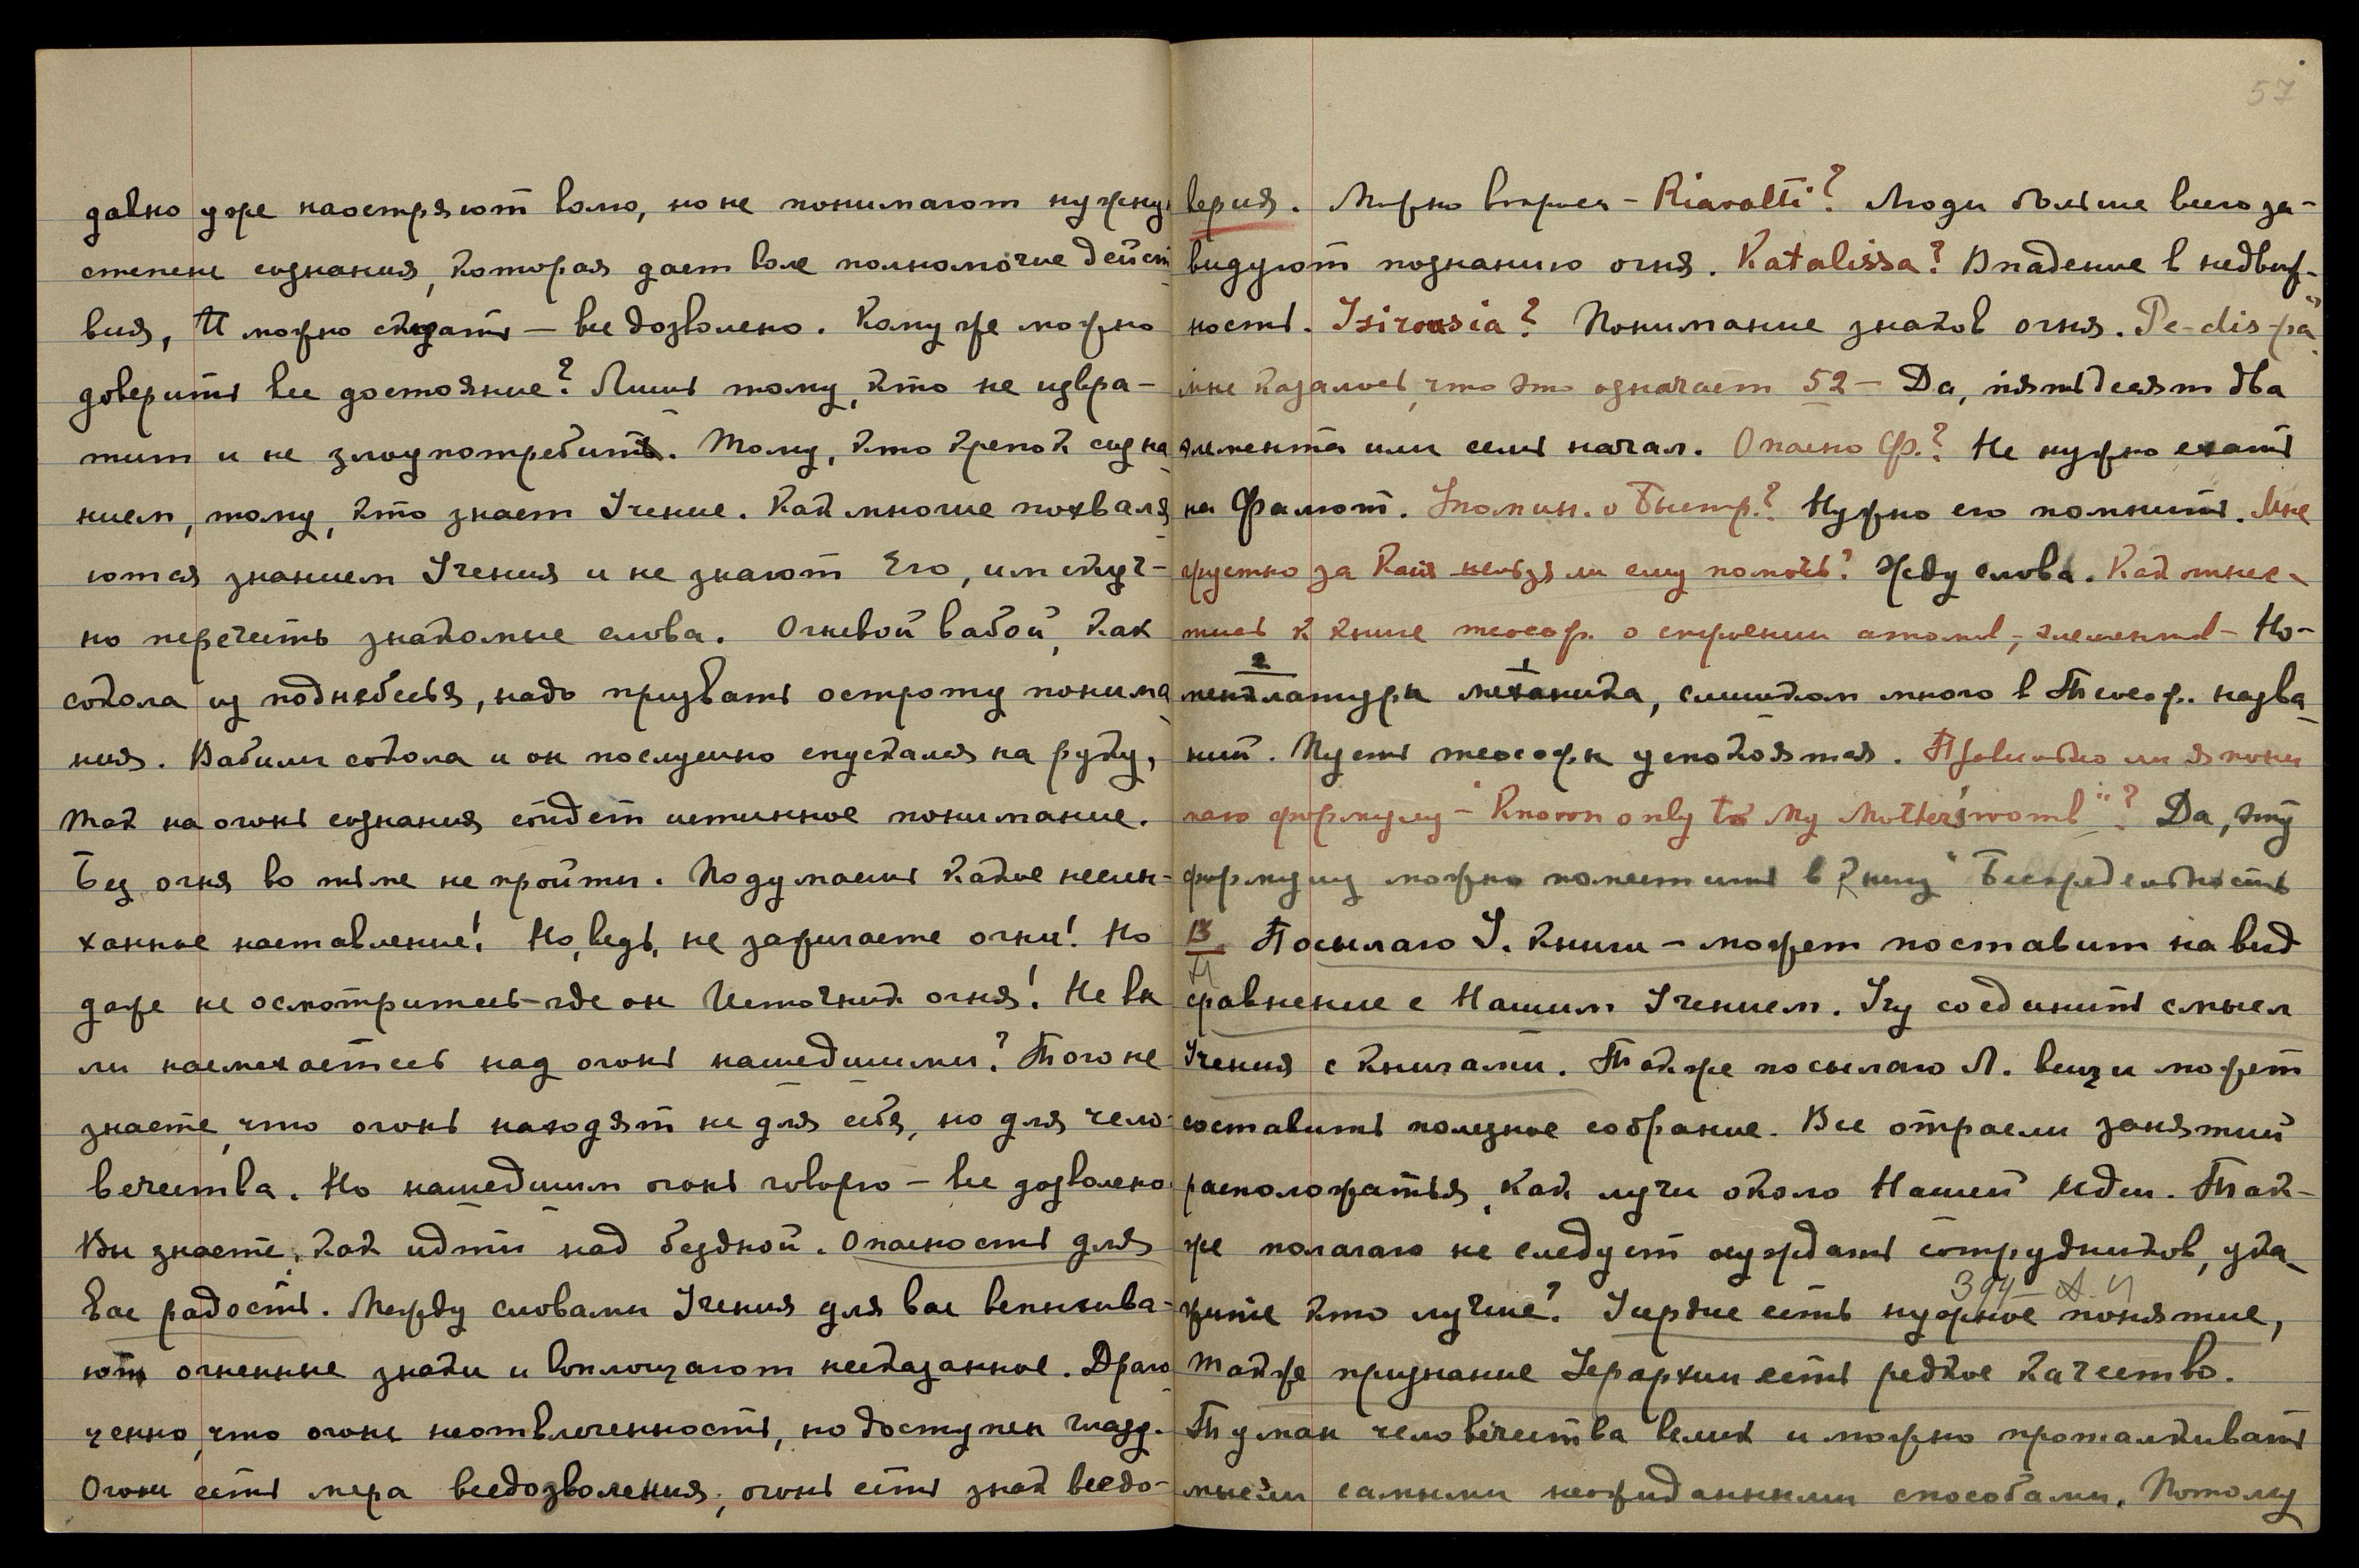 давно уже наостряют волю, но не понимают нужную
степени сознания, которая дает воле полномочие дейст
вия, И можно сказать — все дозволено. Кому же можно
доверить все достояние? Лишь тому, кто не извра-
тит и не злоупотребит. Тому, кто крепок созна
нием, тому, кто знает Учение. Как многие похваля
ются знанием Учения и не знают Его, им скуч-
но перечесть знакомые слова. Огневой вабой, как
сокола из поднебесья, надо призвать остроту понима
ния. Вабили сокола и он послушно спускался на руку,
так на огонь сознания сойдет истинное понимание.
Без огня во тьме не пройти. Подумаешь какое неслы-
ханное наставление! Но, ведь, не зажигаете огни! Но
даже не осмотритесь — где он Источник огня! Не вы
ли насмехаетесь над огонь нашедшими? Того не
знаете, что огонь находят не для себя, но для чело-
вечества. Но нашедшим огонь говорю — все дозволено
Вы знаете, как идти над бездной. Опасность для
вас радость. Между словами Учения для вас вспыхива-
ют огненные знаки и воплощают несказанное. Драго
ценно, что огонь неотвлеченность, но доступен глазу.
Огонь есть мера вседозволения, огонь есть знак вседо-
57
верия. Можно вопрос — Riavolti? Люди больше всего за-
видуют познанию огня. Katalissa? Впадение в недвиж-
ность. Isirousia? Понимание знаков огня. Pe-dis-pa
мне казалось, что это означает 52 — Да, пятьдесят два
элемента или семь начал. Опасно Ф.? Не нужно ехать
на Фалют. Упомин. о Быстр.? Нужно его помнить. Мне
грустно за Кай нельзя ли ему помочь? Жду слова. Как отнес-
тись к книге теософ. о строении атомов, элементов — Но-
2 1
менклатура механика, слишком много в Теософ. назва
ний. Пусть теософы успокоятся. Правильно ли я пони
маю формулу — "Known only to My Mother's womb"? Да, эту
формулу можно поместить в книгу "Беспредельность
13. Посылаю У. книги — может поставит на вид
сравнение с Нашим Учением. Угу соединить смысл
Учения с книгами. Также посылаю Л. вещи может
составить полезное собрание. Все отрасли занятий
расположатся, как лучи около Нашей идеи. Так-
же полагаю не следует осуждать сотрудников, ука
394 — А. Й
жите кто лучше? Усердие есть нужное понятие,
также признание Иерархии есть редкое качество.
Туман человечества велик и можно проталкивать
мысли самыми неожиданными способами. Потому